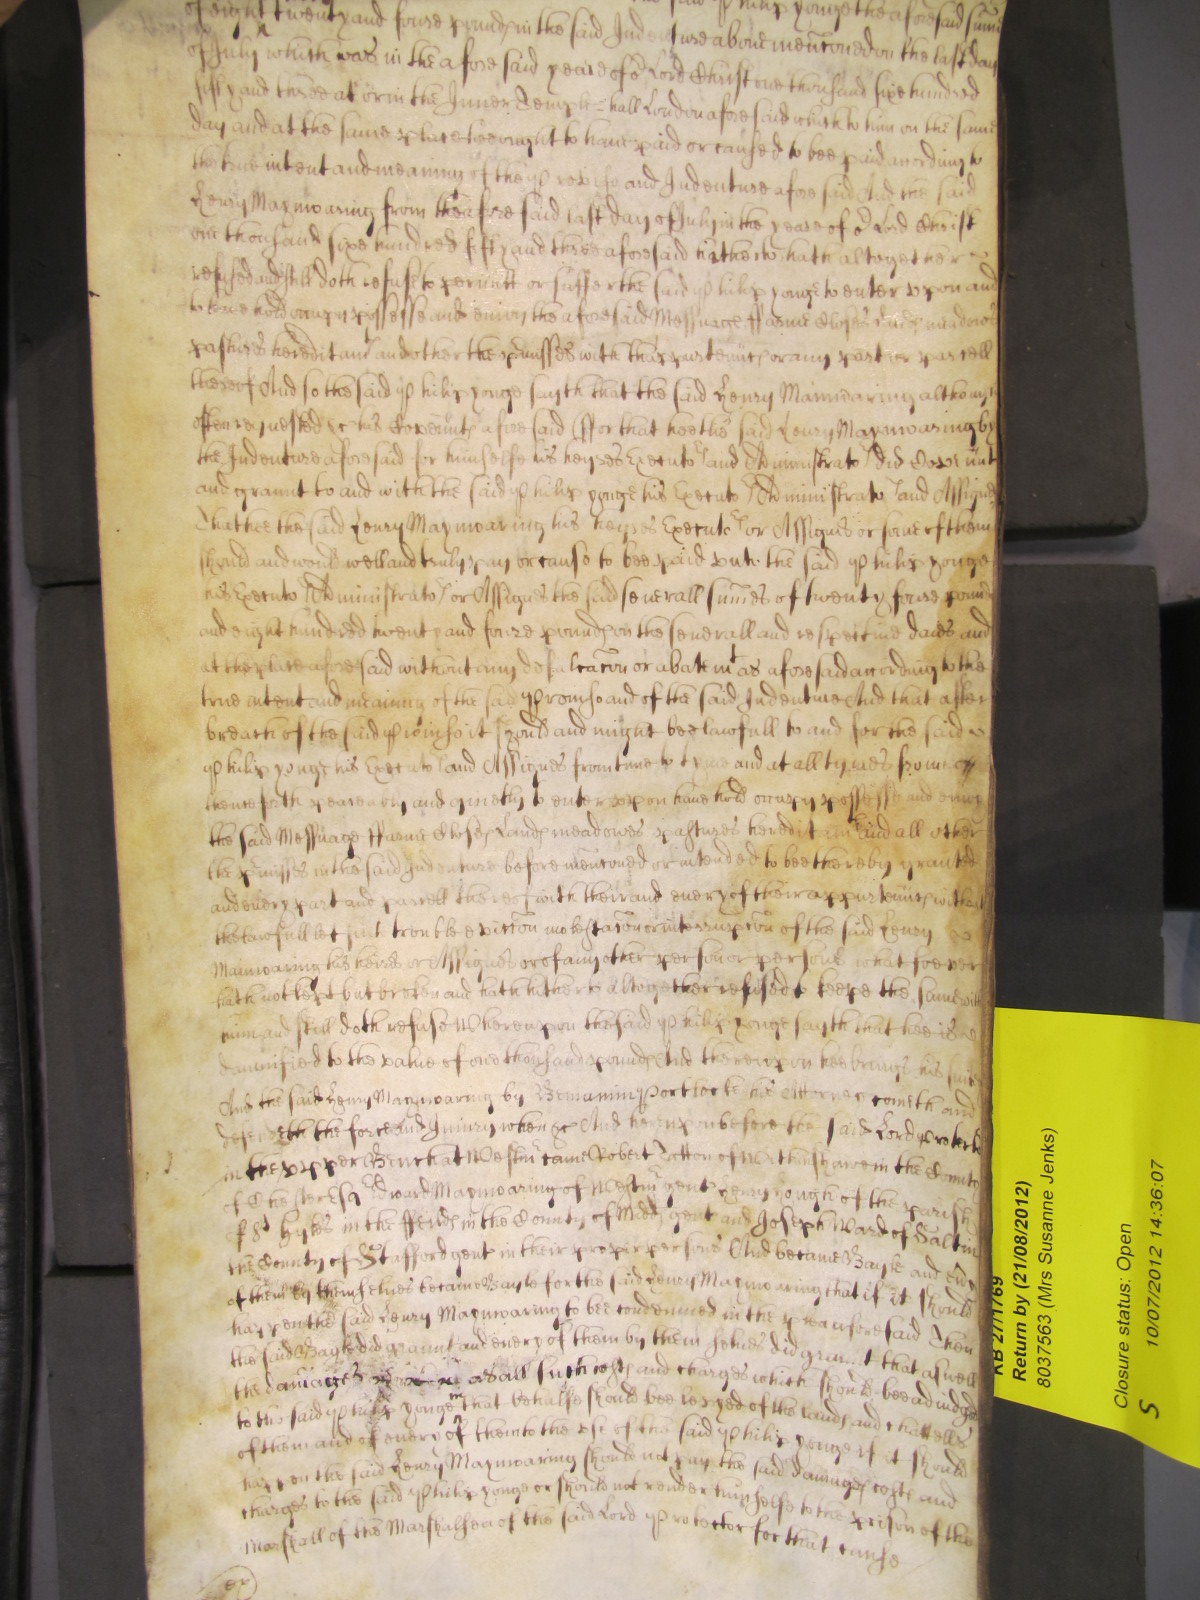 of eight twenty and foure pounds in the said Indenture above menconed on the last day
of July which was in the afore said yeare of or Lord Christ one thousand sixe hundred
fifty and three at or in the Inner Temple hall London afore said which to him on the same
day and at the same place hee ought to have paid or caused to bee paid according to
the true intent and meaning of the Proviso and Indenture afore said And the said
Henry Maynwaring from the afore said last day of July in the yeare of or Lord Christ
one thousand sixe hundred fifty and three aforesaid hitherto hath altogether
refused and still doth refuse to permitt or suffer the said Philip yonge to enter upon and
to have hold occupy possesse and enioy the afore said Messuage ffarme Closes Lands meadowes
pastures hereditamts and other the pmisses with thappurtennces or any part or parcell
thereof And so the said Philip yonge sayth that the said Henry Mainwaring although
often requested &c his Covennts afore said (ffor that hee the said Henry Maynwaring by
the Indenture aforesaid for himselfe his heyres Executors and Administrators did Covennt
and graunt to and with the said Philip yonge his Executors Administrators and Assignes
That hee the said Henry Maynwaring his heyres Executors or Assignes or some of them
should and would well and truly pay or cause to bee paid unto the said Philip yonge
his Executors Administrators or Assignes the said severall summes of twenty foure pounds
and eight hundred twenty and foure pounds on the severall and respective daies and
at the place afore said without any defalcacon or abatemt as afore said according to the
true intent and meaning of the said Proviso and of the said Indenture And that after
breach of the said Proviso it should and might bee lawfull to and for the said
Philip yonge his Executors and Assignes from time to time and at all tymes from
thenceforth peaceably and quietly to enter upon have hold occupy possesse and enioy
the said Messuage ffarme Closes Lands meadowes pastures hereditamts and all other
the pmisses in the said Indenture before menconed or intended to bee thereby granted
and every part and parcell thereof with their and every of their appurtennces without
the lawfull let suit trouble eviccon molestacon or interrupcon of the said Henry
Maynwaring his heires or Assignes or of any other person or persons what soever
hath not kept but broken and hath hitherto altogether refused to keepe the same with
him and still doth refuse Whereupon the said Philip yonge sayth that hee is
damnified to the value of one thousand pounds And thereupon hee brings his suite
And the said Henry Maynwaring by Beniamin Portlocke his Attorney cometh and
defendeth the force and Iniury when &c And hereupon before the said Lord Protector
in the upper Bench at Westmr came Robert Tatton of Withinshawe in the County
of Chester Esqr Edward Maynwaring of Westmr gent Henry yough of the parish
of St Gyles in the ffeilds in the County of Midds gent and Joseph Ward of Salt in
the County of Stafford gent in their proper persons And became Bayle and every
of them by themselves became Bayle for the said Henry Maynwaring that if it should
happen the said Henry Maynwaring to bee condemned in the plea afore said Then
the said Bayle did graunt and every of them by them selves did graunt that aswell
the damages as all such costs and charges which should bee adiudged
to the said Philip yonge in that behalfe should bee levyed of the lands and chattells
of them and of every of them to the use of the said Philip yonge if it should
happen the said Henry Maynwaring should not pay the said damages costs and
charges to the said Philip yonge or should not render himselfe to the prison of the
Marshall of the Marshalsea of the said Lord Protector for that cause
KB 27/1769
Return by (21/08/2012)
8037563 (Mrs Susanne Jenks)
Closure status: Open
S 10/07/2012 14:36:07